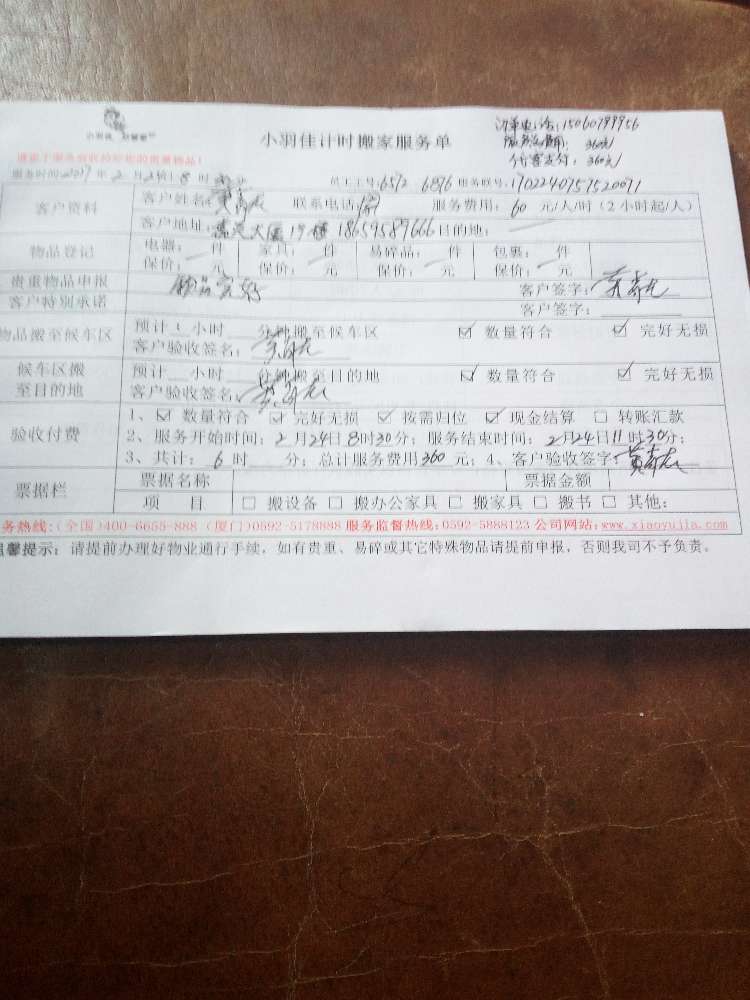 小羽佳计时搬家服务单
订单电话：15060799956
服务总费用：360元
客户需支付：360元
请勿于服务验收给好您的贵重物品！
服务时间：2017年2月24日8时 员工工号：6572 6876 服务联号：1702240757520071
客户资料 客户姓名： 联系电话： 服务费用：60 元/人/时（2小时起/人）
客户地址： 大厦19楼 18659589666 目的地：
物品登记 电器： 件 家具： 件 易碎品： 件 包裹： 件
保价： 元 保价： 元 保价： 元 保价： 元
贵重物品申报 物品完好 客户签字：
客户特别承诺 客户签字：
物品搬至候车区 预计 小时 分钟搬至候车区 ☑ 数量符合 ☑ 完好无损
客户验收签名：
候车区搬至目的地 预计 小时 分钟搬至目的地 ☑ 数量符合 ☑ 完好无损
客户验收签名：
验收付费 1、☑ 数量符合 ☑ 完好无损 ☑ 按需归位 ☑ 现金结算 □ 转账汇款
2、服务开始时间：2月24日8时30分；服务结束时间：2月24日11时30分；
3、共计：6 时 分；总计服务费用360 元；4、客户验收签字：
票据栏 票据名称 票据金额
项 目 □ 搬设备 □ 搬办公家具 □ 搬家具 □ 搬书 □ 其他：
务热线：(全国)400-6655-888 (厦门)0592-5178888 服务监督热线：0592-5888123 公司网站：www.xiaoyujia.com
温馨提示：请提前办理好物业通行手续，如有贵重、易碎或其它特殊物品请提前申报，否则我司不予负责。